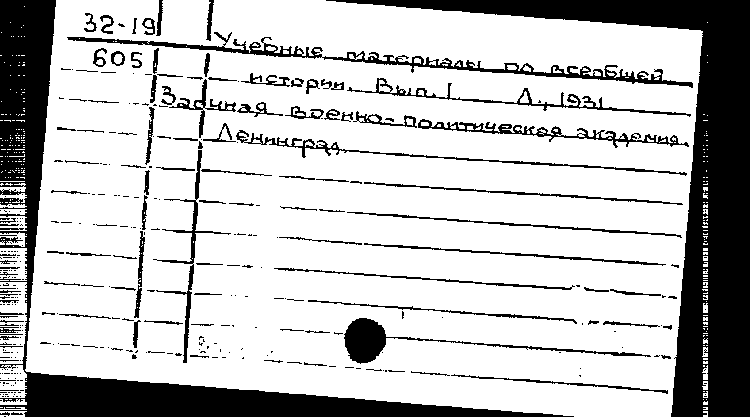 32-19
605
Учебные материалы по всеобщей
истории. Вып. I Л., 1931.
Заочная военно-политическая академия.
Ленинград.